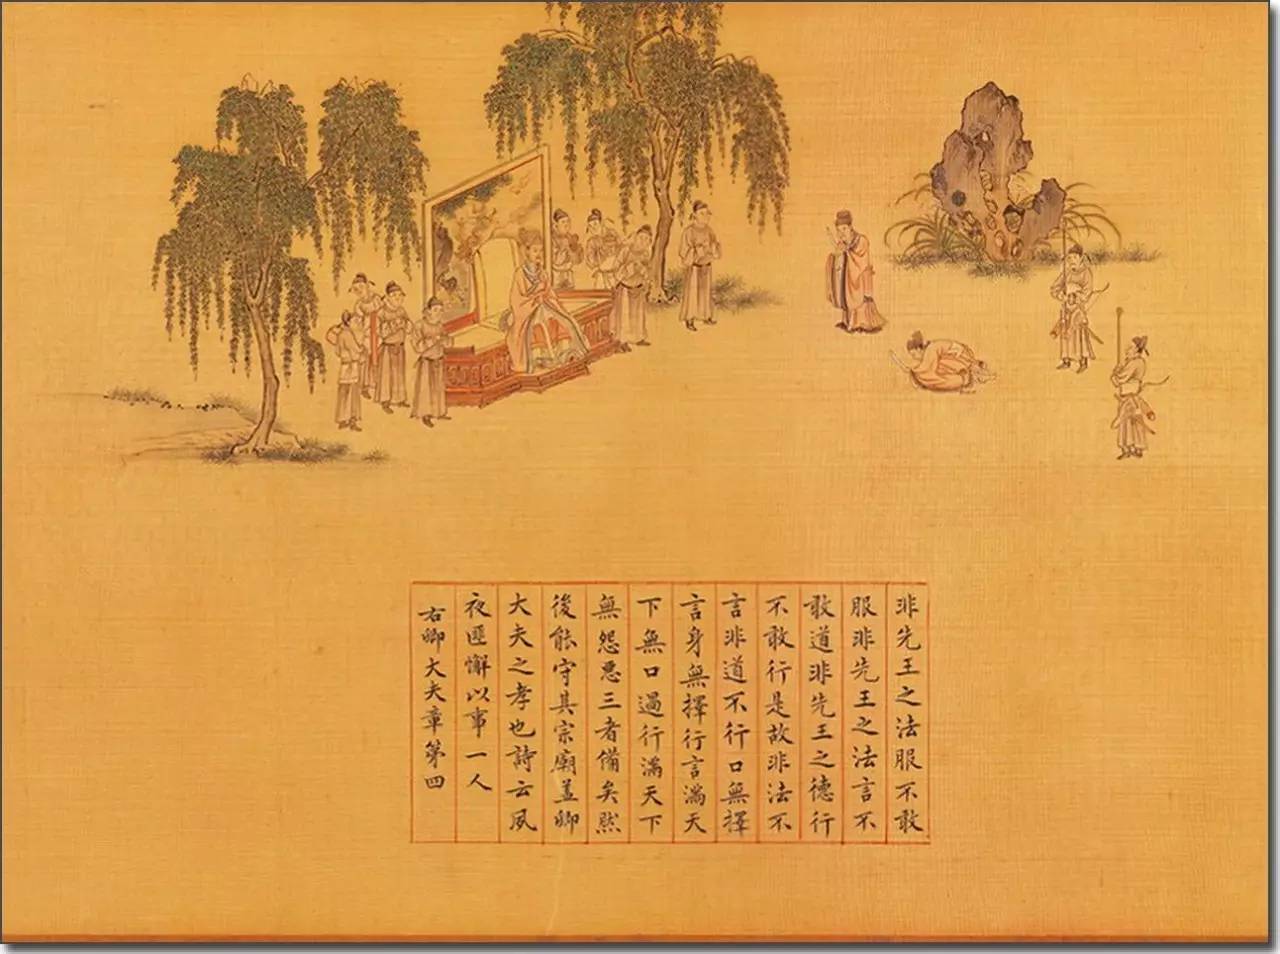 非先王之法服不敢
服非先王之法言不
敢道非先王之德行
不敢行是故非法不
言非道不行口無擇
言身無擇行言滿天
下無口過行滿天下
無怨惡三者備矣然
後能守其宗廟蓋卿
大夫之孝也詩云夙
夜匪懈以事一人
右卿大夫章第四